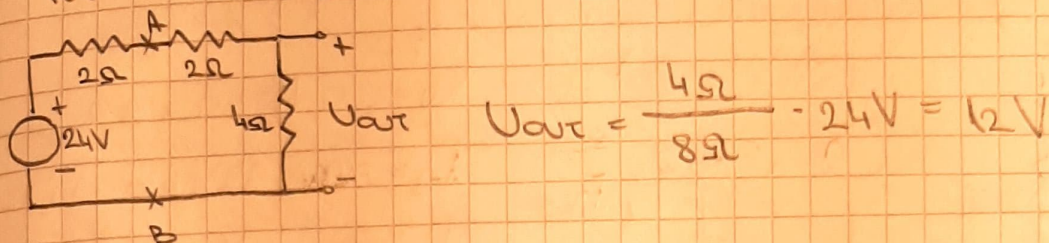 A
2Ω 2Ω +
+
24V 4Ω Uout
-
-
B
Uout = 4Ω / 8Ω · 24V = 12V